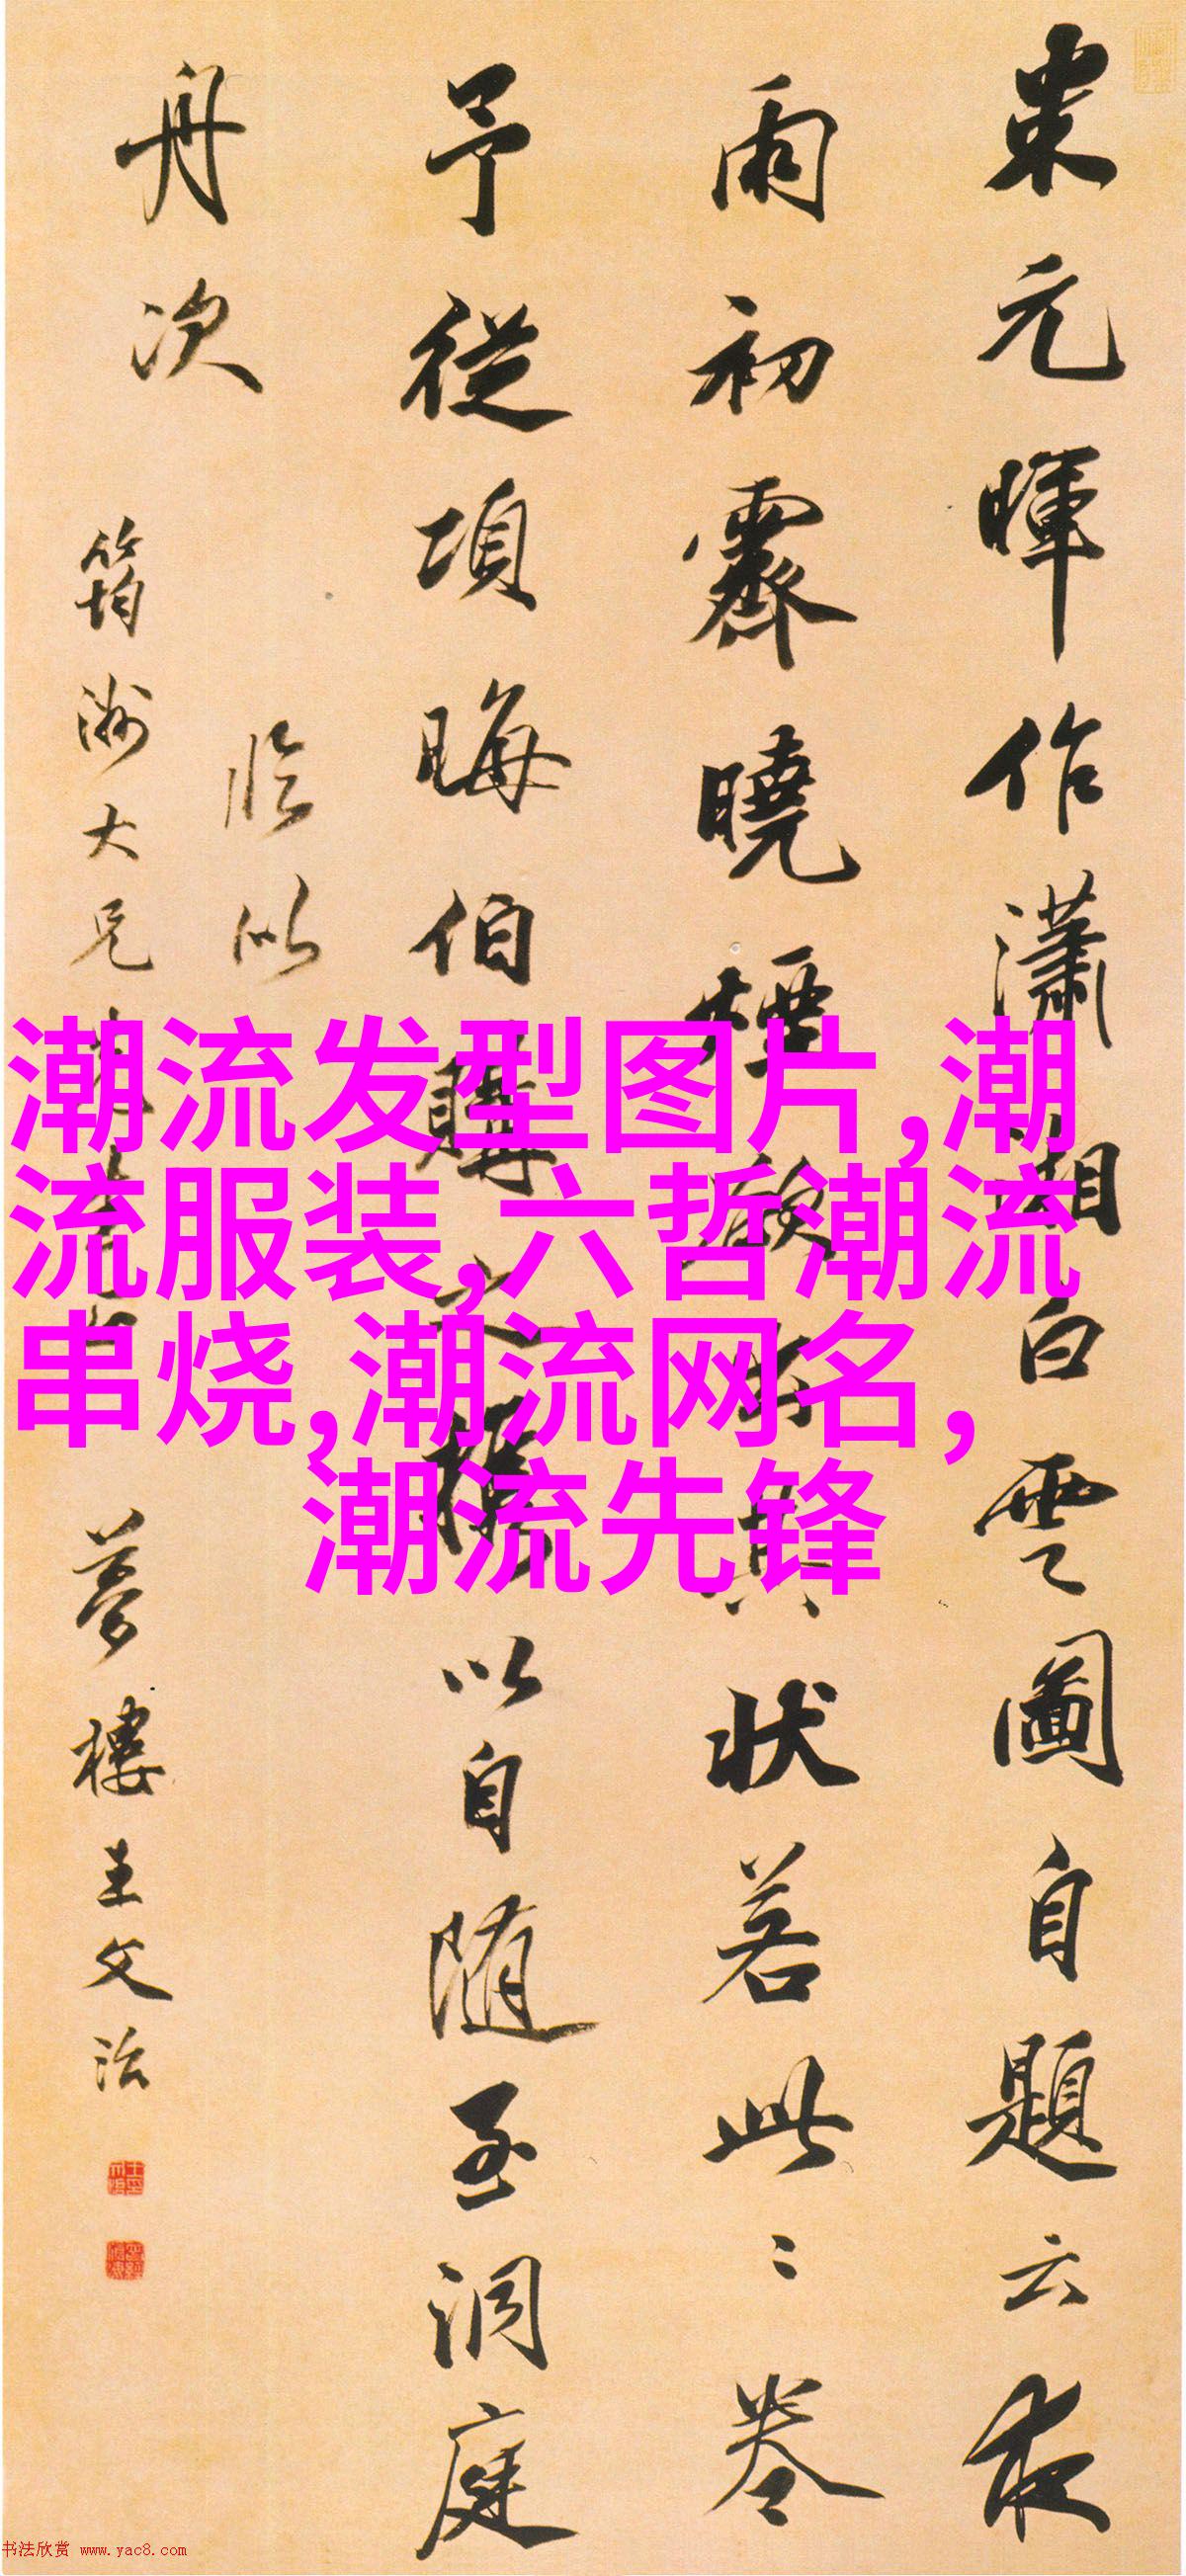 米元暉作瀟湘白雲圖自題云夜
雨初霽曉煙欲出其狀若此〻卷
予從項晦伯購之攜以自隨至洞庭
舟次
臨似
筠洲大兄
夢樓王文治
潮流发型图片,潮
流服装,六哲潮流
串烧,潮流网名,
潮流先锋
书法欣赏 www.yac8.com